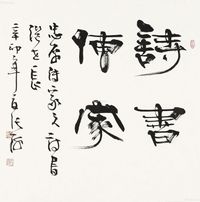 詩書
傳家
忠厚傳家久詩書
繼世長
辛卯年夏